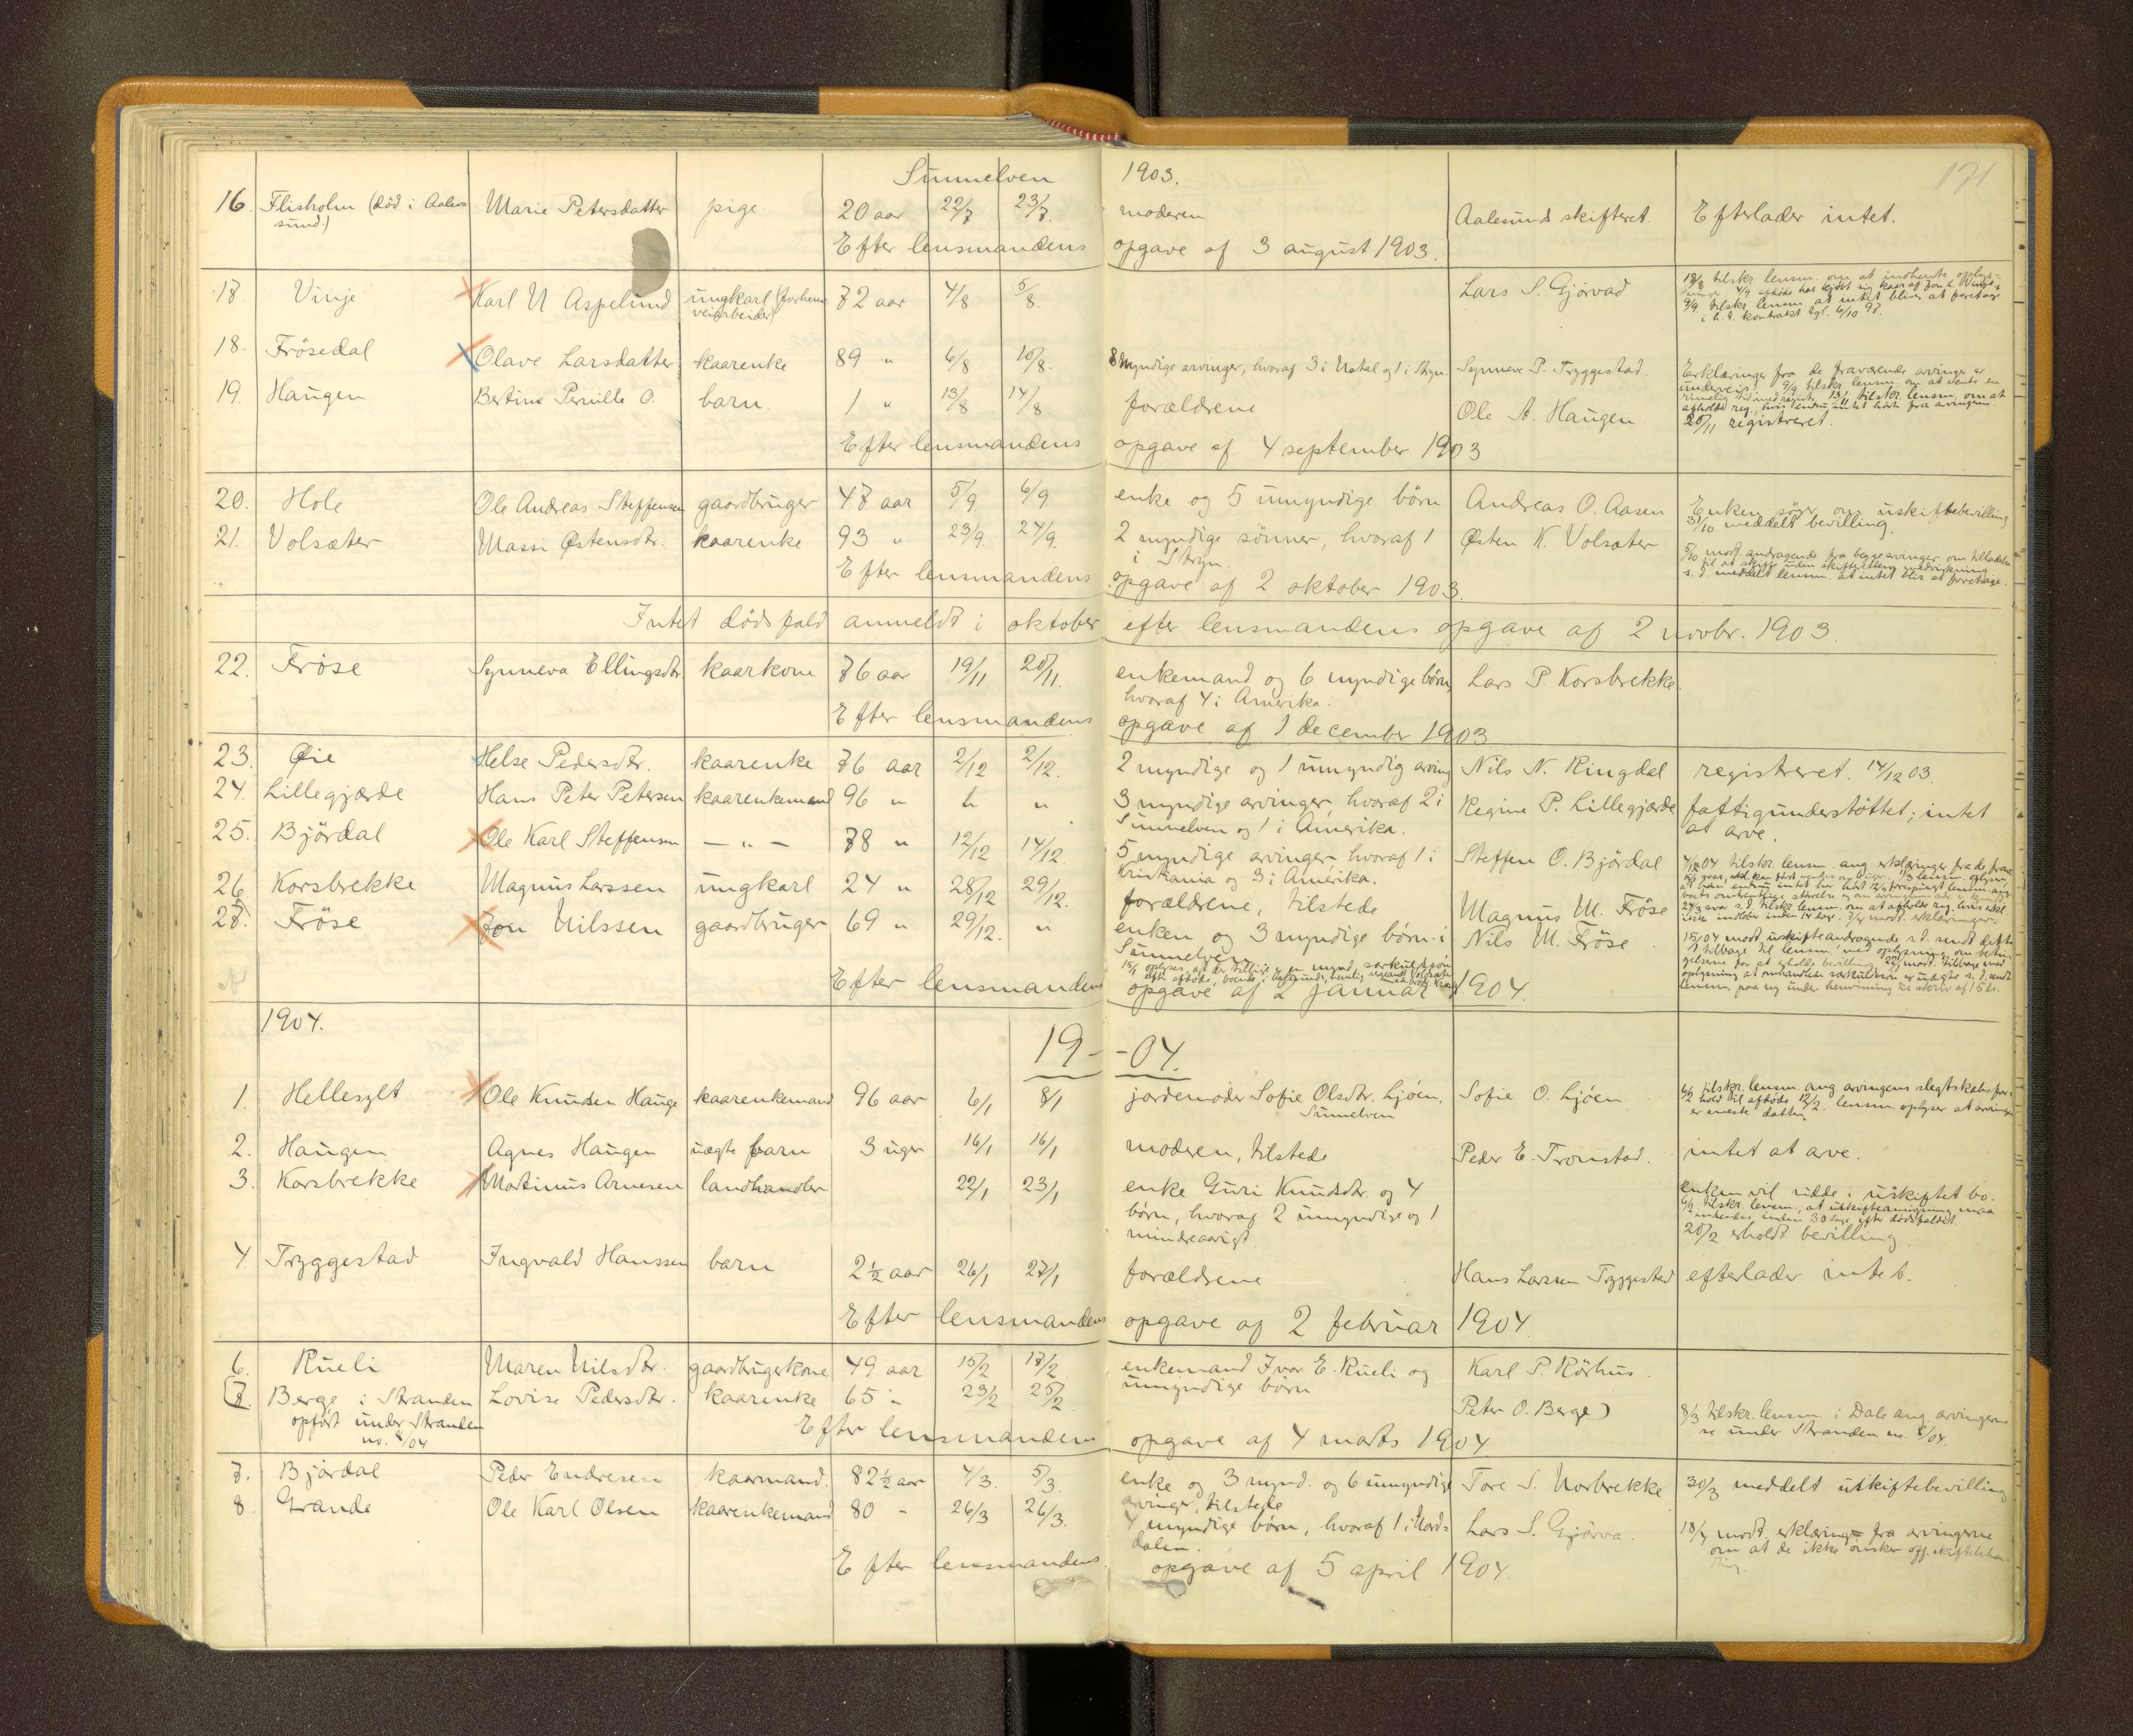 Sunnelven 1903. 171
16. Flisholm (død i Aalesund.) Marie Petersdatter pige 20 aar 22/7 23/7. moderen Aalesund skifteret. Efterlader intet.
Efter lensmandens opgave af 3 august 1903.
17. Vinje Karl N Aspelund ungkarl (forhenv. veiarbeider) 72 aar 4/8 5/8 Lars S. Gjörvad 18/8 tilskr. lensm. om at indhente oplys-
9/9 tilskr. lensm. at intet bliver at foretage
i h. t. kontrakt tgl. 6/10 97.
18. Frösedal Olave Larsdatter kaarenke 89 " 6/8 10/8. 8 myndige arvinger, hvoraf 3 i Natal og 1 i Stryn. Synneve P. Tryggestad Erklæringer fra de fraværende arvinger er
underveis. 9/9 tilskr. lensm. om at vente en
rimelig tid med registr. 13/11 tilskr. lensm. om at
afholde reg., hvis endnu intet hört fra arvingerne.
20/11 registreret.
19. Haugen Bertine Pernille O. barn 1 " 13/8 14/8 forældrene Ole A. Haugen
Efter lensmandens opgave af 4 september 1903
20. Hole Ole Andreas Steffensen gaardbruger 47 aar 5/9 6/9 enke og 5 umyndige börn Andreas O. Aasen Enken söger om uskiftebevilling
31/10 meddelt bevilling.
21. Volsæter Massi Østensdtr. kaarenke 93 " 23/9. 24/9. 2 myndige sönner, hvoraf 1 i Stryn. Østen K. Volsæter 5/10 modt. andragende fra begge arvinger om tilladelse
til at skifte uden skifterettens medvirkning
s. d. meddelt lensm. at intet blir at foretage.
Efter lensmandens opgave af 2 oktober 1903.
Intet dödsfald anmeldt i oktober efter lensmandens opgave af 2 novbr. 1903.
22. Fröse Synneva Ellingsdtr. kaarkone 76 aar 19/11 20/11. enkemand og 6 myndige börn, hvoraf 4 i Amerika. Lars P. Korsbrekke.
Efter lensmandens opgave af 1 december 1903
23. Øie Helse Pedersdtr. kaarenke 76 aar 2/12 2/12. 2 myndige og 1 umyndig arving Nils N. Ringdal registreret. 14/12 03.
24. Lillegjærde Hans Peter Petersen kaarenkemand 96 " " " 3 myndige arvinger, hvoraf 2 i Sunnelven og 1 i Amerika. Regine P. Lillegjærde fattigunderstöttet; intet at arve.
25. Björdal Ole Karl Steffensen — " — 78 " 12/12 14/12. 5 myndige arvinger hvoraf 1 i Kristiania og 3 i Amerika. Steffen O. Björdal
26 Korsbrekke Magnus Larssen ungkarl 24 " 28/12 29/12. forældrene, tilstede Magnus M. Fröse
27. Fröse Jon Nilssen gaardbruger 69 " 29/12. " enken og 3 myndige börn i Sunnelven Nils M. Fröse 15/1 04 modt. uskifteandragende s. d. sendt dette
tilbage til lensm. med oplysning om betin-
gelserne for at erholde bevilling 22/1 modt. tilbage med
oplysning at omhandlede særkuldssön er uægte s. d. sendt
Efter lensmandens opgave af 2 januar 1904.
1904.
19 - - 04.
1. Hellesylt Ole Knudsen Hauge kaarenkemand 96 aar 6/1 8/1 jordemoder Sofie Olsdtr. Ljöen, Sunnelven Sofie O. Ljöen 6/2 tilskr. lensm. ang. arvingens slegtskabsfor-
hold til afdöde 12/2. lensm. oplyser at arvingen
er eneste datter
2. Haugen Agnes Haugen uægte barn 3 uger 16/1 16/1 moderen, tilstede Peder E. Tronstad. intet at arve.
3. Korsbrekke Martinus Arnesen landhandler 22/1 23/1 enke Guri Knudsdtr. og 4
börn, hvoraf 2 umyndige og 1
mindreaarigt. enken vil sidde i uskiftet bo.
6/2 tilskr. lensm., at uskifteansögning maa
indsendes inden 30 dage efter dödsfaldet.
20/2 erholdt bevilling
4. Tryggestad Ingvald Hanssen barn 2½ aar 26/1 27/1 forældrene Hans Larssen Tryggestad efterlader intet.
Efter lensmandens opgave af 2 februar 1904
6. Rueli Maren Nilsdtr. gaardbrugerkone 49 aar 15/2 17/2 enkemand Ivar E. Rueli og umyndige börn Karl P. Rörhus.
(7. Berge i Stranden Lovise Pedersdtr. kaarenke 65 " 23/2 25/2 Peter O. Berge) 8/3 tilskr. lensm. i Dale ang. arvingerne
se under Stranden no. 8/04
opfört under Stranden
no. 8/04
Efter lensmandens opgave af 4 marts 1904
7. Björdal Peder Endresen kaarmand. 82½ aar 4/3. 5/3. enke og 3 mynd. og 6 umyndige arvinger, tilstede Tore S. Norbrekke 30/3 meddelt uskiftebevilling
8. Grande Ole Karl Olsen kaarenkemand 80 " 26/3 26/3. 4 myndige börn, hvoraf 1 i Nord-
dalen. Lars S. Gjörva. 18/4 modt. erklæring fra arvingerne
om at de ikke önsker off. skiftebehand-
ling.
Efter lensmandens opgave af 5 april 1904.